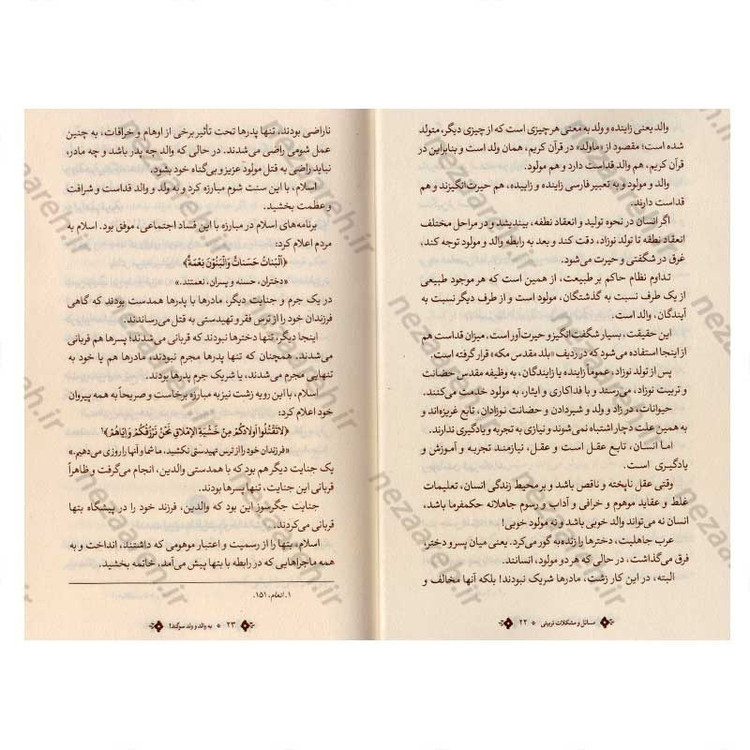 والد یعنی زاینده و ولد به معنی هر چیزی است که از چیزی دیگر، متولد
شده است؛ مقصود از «ماولد» در قرآن کریم، همان ولد است و بنابراین در
قرآن کریم، هم والد قداست دارد و هم مولود.
والد و مولود و به تعبیر فارسی زاینده و زاییده، هم حیرت‌انگیزند و هم
قداست دارند.
اگر انسان در نحوه تولید و انعقاد نطفه، بیندیشد و در مراحل مختلف
انعقاد نطفه تا تولد نوزاد، دقت کند و بعد به رابطه والد و مولود توجه کند،
غرق در شگفتی و حیرت می‌شود.
تداوم نظام حاکم بر طبیعت، از همین است که هر موجود طبیعی
از یک طرف نسبت به گذشتگان، مولود است و از طرف دیگر نسبت به
آیندگان، والد است.
این حقیقت، بسیار شگفت انگیز و حیرت‌آور است. میزان قداست هم
از اینجا استفاده می‌شود که در ردیف «بلد مقدس مکه» قرار گرفته است.
پس از تولد نوزاد، عموماً زاینده یا زایندگان، به وظیفه مقدس حضانت
و تربیت نوزاد، می‌رسند و با فداکاری و ایثار، به مولود خدمت می‌کنند.
حیوانات، در زاد و ولد و شیردادن و حضانت نوزادان، تابع غریزه‌اند و
به همین علت دچار اشتباه نمی‌شوند و نیازی به تجربه و یادگیری ندارند.
اما انسان، تابع عقل است و عقل، نیازمند تجربه و آموزش و
یادگیری است.
وقتی عقل ناپخته و ناقص باشد و بر محیط زندگی انسان، تعلیمات
غلط و عقاید موهوم و خرافی و آداب و رسوم جاهلانه حکمفرما باشد،
انسان نه می‌تواند والد خوبی باشد و نه مولود خوبی!
عرب جاهلیت، دخترها را زنده به گور می‌کرد. یعنی میان پسر و دختر،
فرق می‌گذاشت، در حالی که هر دو مولود، انسانند.
البته، در این کار زشت، مادرها شریک نبودند! بلکه آنها مخالف و
مسائل و مشکلات تربیتی * ۲۲
ناراضی بودند، تنها پدرها تحت تأثیر برخی از اوهام و خرافات، به چنین
عمل شومی راضی می‌شدند. در حالی که والد چه پدر باشد و چه مادر،
نباید راضی به قتل مولود عزیز و بی‌گناه خود بشود.
اسلام، با این سنت شوم مبارزه کرد و به ولد و والد قداست و شرافت
و عظمت بخشید.
برنامه‌های اسلام در مبارزه با این فساد اجتماعی، موفق بود. اسلام به
مردم اعلام کرد:
﴿اَلْبَناتُ حَسَناتٌ وَالْبَنُونَ نِعْمَةٌ﴾
«دختران، حسنه و پسران، نعمتند.»
در یک جرم و جنایت دیگر، مادرها با پدرها همدست بودند که گاهی
فرزندان خود را از ترس فقر و تهیدستی به قتل می‌رساندند.
اینجا دیگر، تنها دخترها نبودند که قربانی می‌شدند؛ پسرها هم قربانی
می‌شدند. همچنان که تنها پدرها مجرم نبودند، مادرها هم یا خود به
تنهایی مجرم می‌شدند، یا شریک جرم پدرها بودند.
اسلام، با این رویه زشت نیز به مبارزه برخاست و صریحاً به همه پیروان
خود اعلام کرد:
﴿لاتَقْتُلُوا اَولادَکُمْ مِنْ خَشْیَةِ الْاِمْلاقِ نَحْنُ نَرْزُقُکُمْ وَ اِیّاهُمْ﴾۱
«فرزندان خود را از ترس تهیدستی نکشید، ما شما و آنها را روزی می‌دهیم.»
یک جنایت دیگر هم بود که با همدستی والدین، انجام می‌گرفت و ظاهراً
قربانی این جنایت، تنها پسرها بودند.
جنایت جگرسوز این بود که والدین، فرزند خود را در پیشگاه بتها
قربانی می‌کردند.
اسلام، بتها را از رسمیت و اعتبار موهومی که داشتند، انداخت و به
همه ماجراهایی که در رابطه با بتها پیش می‌آمد، خاتمه بخشید.
۱. انعام، ۱۵۱.
۲۳ * به والد و ولد سوگند!
nezaareh.ir